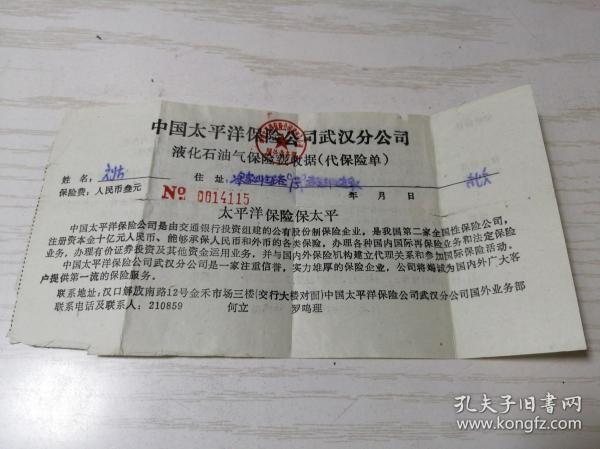 中国太平洋保险公司武汉分公司
液化石油气保险费收据(代保险单)
姓名: 住址:
保险费:人民币叁元 No 0014115 年 月 日
太平洋保险保太平
中国太平洋保险公司是由交通银行投资组建的公有股份制保险企业,是我国第二家全国性保险公司,
注册资本金十亿元人民币、能够承保人民币和外币的各类保险,办理各种国内国际再保险业务和法定保险
业务,办理有价证券投资及其他资金运用业务,并与国内外保险机构建立代理关系和参加国际保险活动。
中国太平洋保险公司武汉分公司是一家注重信誉,实力雄厚的保险企业,公司将竭诚为国内外广大客
户提供第一流的保险服务。
联系地址:汉口解放南路12号金禾市场三楼(交行大楼对面)中国太平洋保险公司武汉分公司国外业务部
联系电话及联系人:210859 何立 罗鸣理
孔夫子旧书网
www.kongfz.com